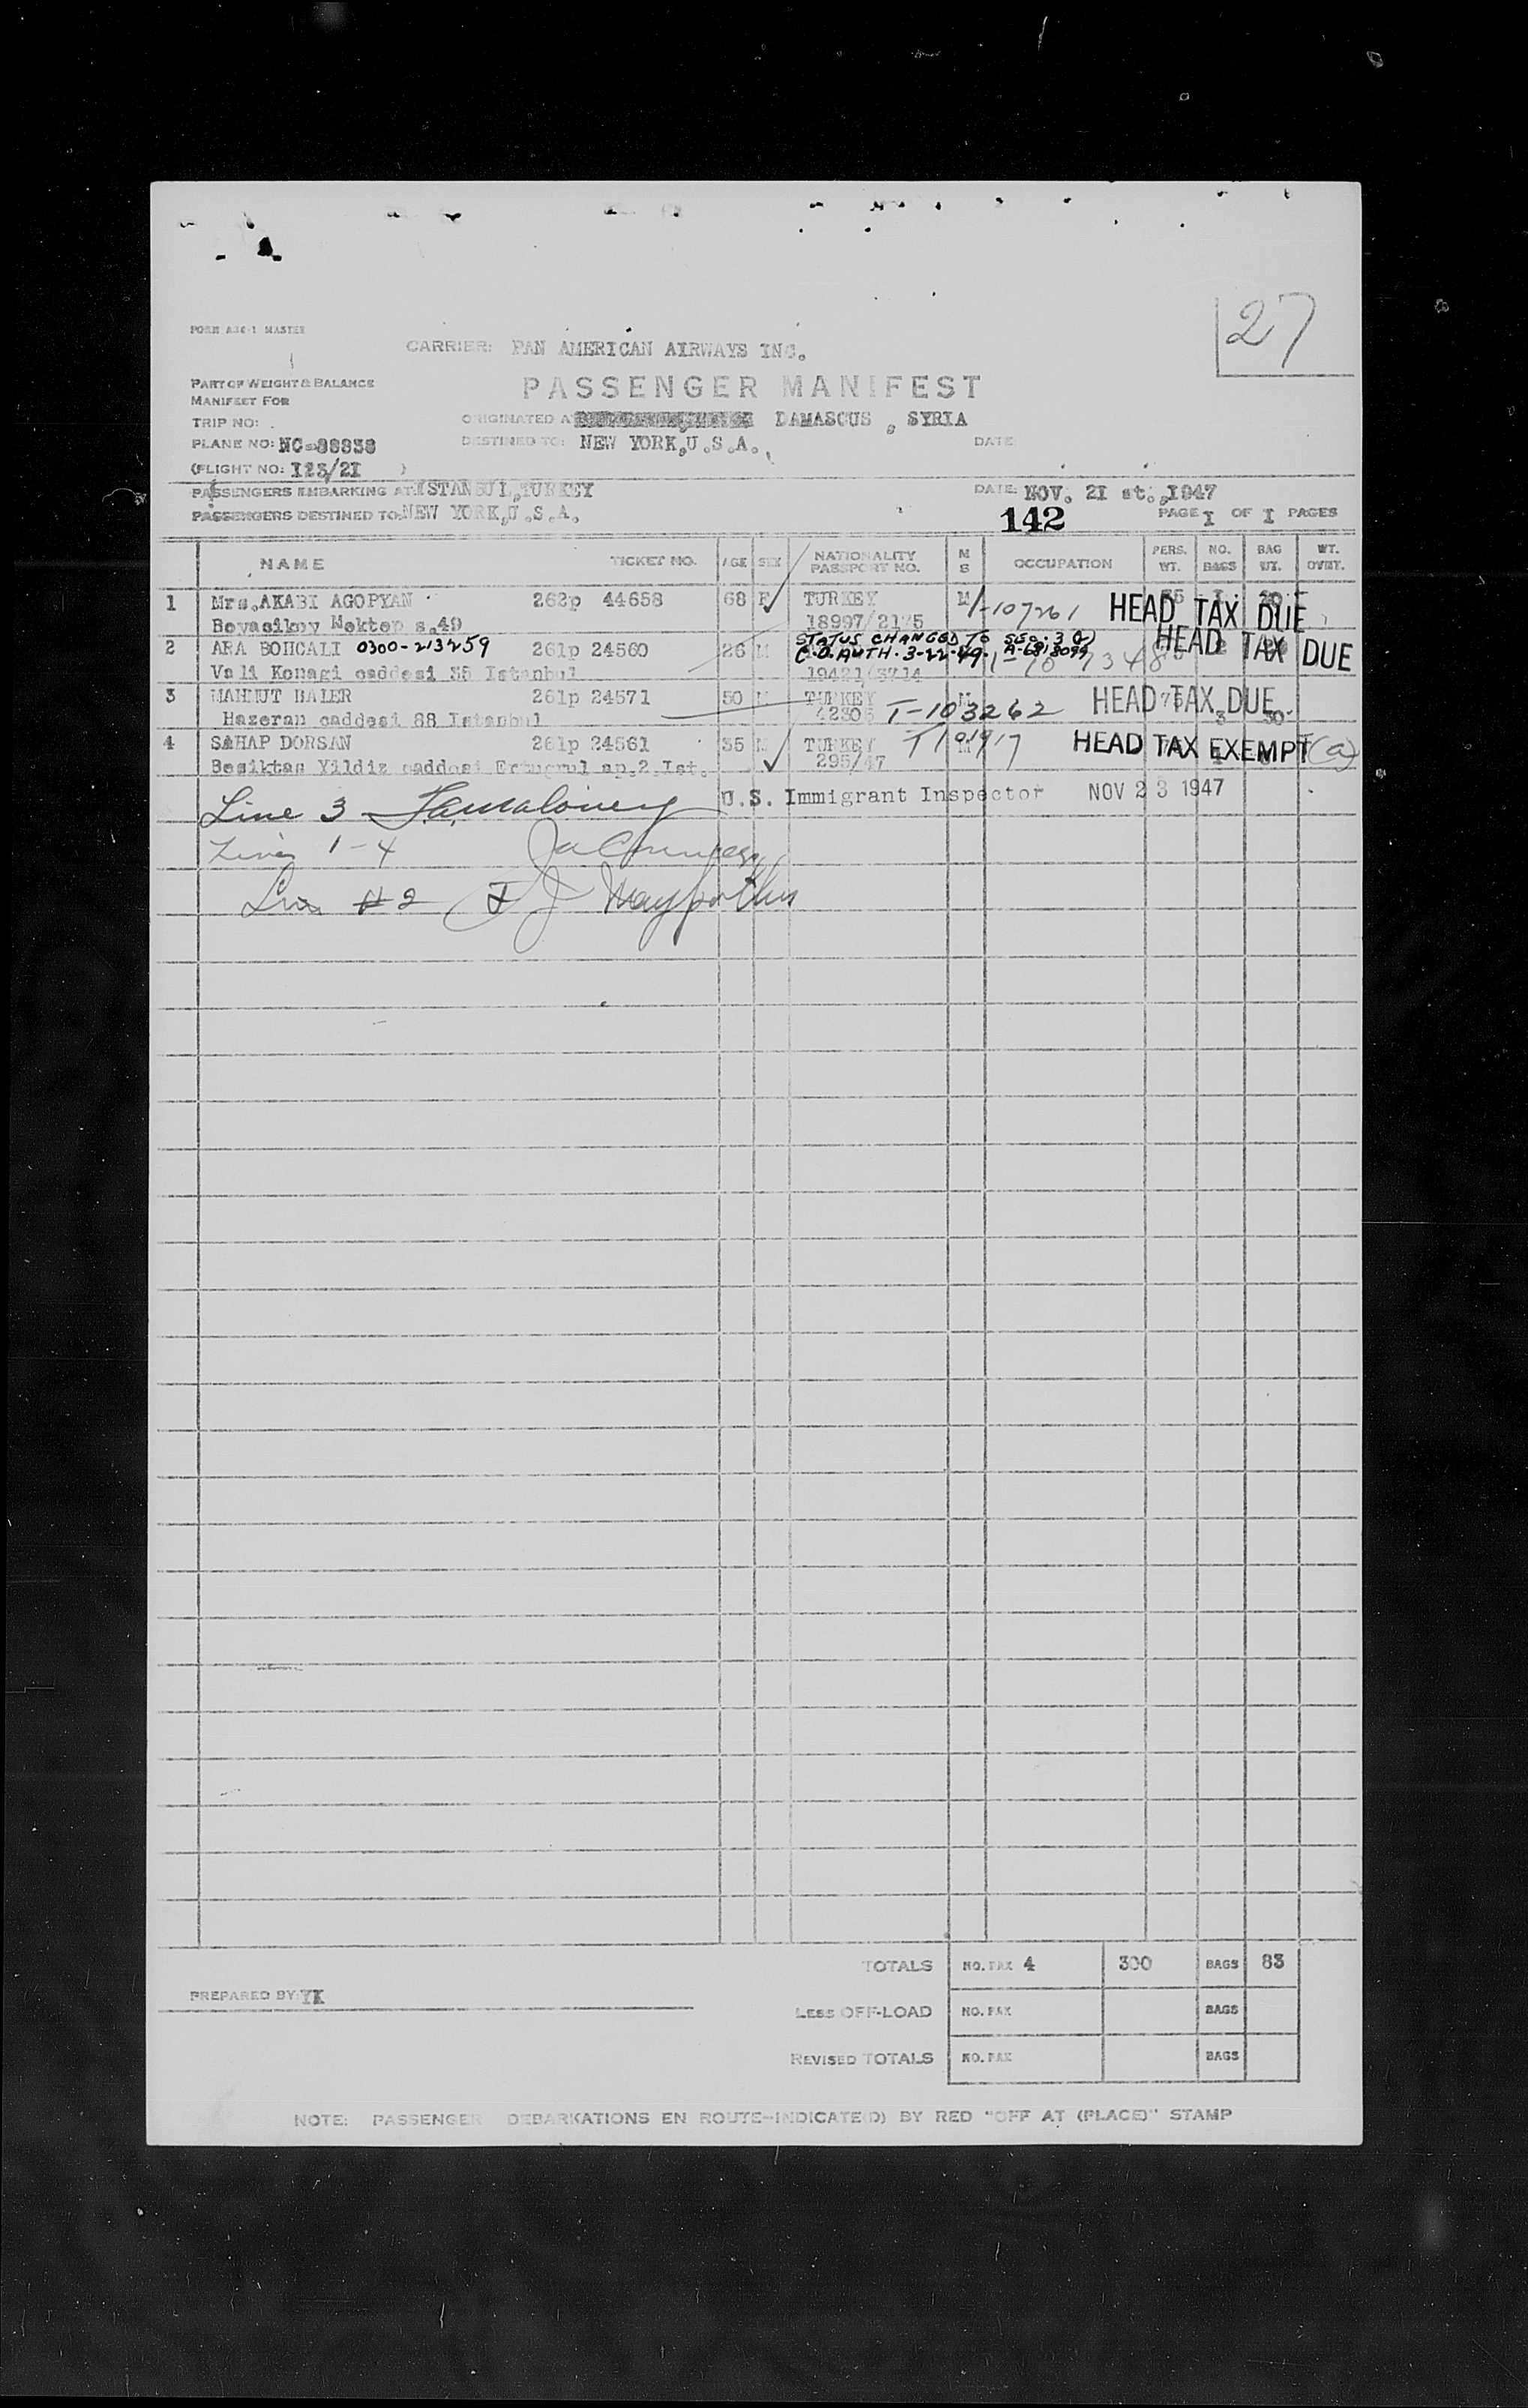 27
FORM
CARRIER: PAN AMERICAN AIRWAYS INC.
PART OF WEIGHT & BALANCE
MANIFEST FOR
PASSENGER MANIFEST
TRIP NO:
ORIGINATED AT DAMASCUS, SYRIA
PLANE NO: NC-88838
DESTINED TO: NEW YORK,U.S.A.,
DATE
(FLIGHT NO: I23/2I )
PASSENGERS EMBARKING AT: ISTANBUL,TURKEY DATE: NOV. 2I st.,1947
PASSENGERS DESTINED TO: NEW YORK,U.S.A. 142 PAGE I OF I PAGES
NAME TICKET NO. AGE SEX NATIONALITY PASSPORT NO. M S OCCUPATION PERS. WT. NO. BAGS BAG WT. WT. OVRT.
1 Mrs.AKABI AGOPYAN 262p 44658 68 F TURKEY M -107261 HEAD TAX DUE
Boyacikoy Mektep s.49 18997/2175
2 ARA BOHCALI 0300-213259 261p 24560 26 M STATUS CHANGED TO SEC. 3 HEAD TAX DUE
C.O. AUTH. 3-22-49.
Vali Konagi caddesi 35 Istanbul 19421/3714
3 MAHMUT BALER 261p 24571 50 M TURKEY M T-103262 HEAD TAX DUE 3 30
Hazeran caddesi 88 Istanbul 42305
4 SAHAP DORSAN 261p 24561 35 M TURKEY HEAD TAX EXEMPT (a)
Besiktas Yildiz caddesi Ertugrul ap.2 Ist. 295/47
Line 3 U.S. Immigrant Inspector NOV 23 1947
Lines 1-4
Line #2
TOTALS NO. PAX 4 300 BAGS 83
PREPARED BY: YK
LESS OFF-LOAD NO. PAX BAGS
REVISED TOTALS NO. PAX BAGS
NOTE: PASSENGER DEBARKATIONS EN ROUTE-INDICATE(D) BY RED "OFF AT (PLACE)" STAMP